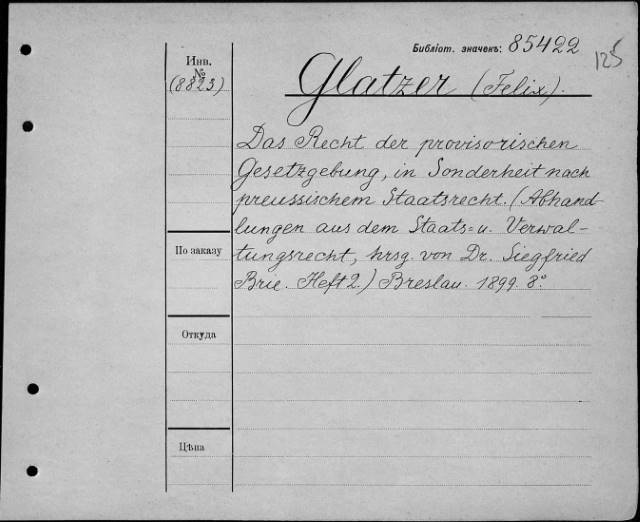 Библіот. значекъ: 85422
125
Инв.
№
(8823)
Glatzer (Felix).
Das Recht der provisorischen
Gesetzgebung, in Sonderheit nach
preussischem Staatsrecht. (Abhand-
lungen aus dem Staats= u. Verwal-
tungsrecht, hrsg. von Dr. Siegfried
Brie. Heft 2.) Breslau. 1899. 8º.
По заказу
Откуда
Цѣна